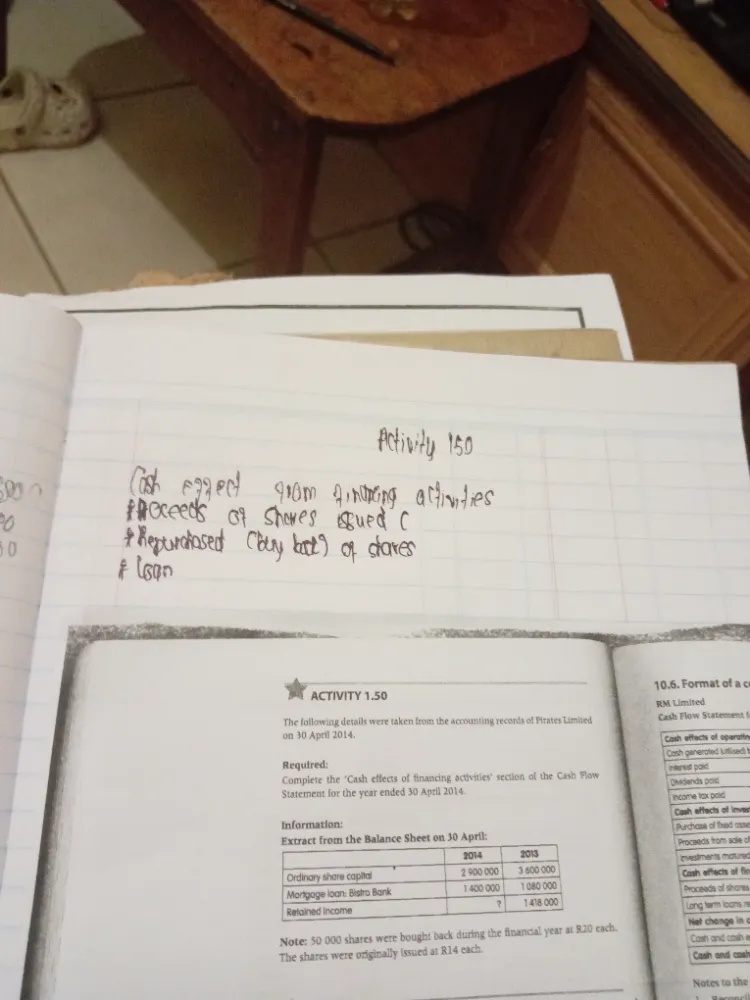 Activity 150
Cash effect from financing activities
* Proceeds of shares issued (
* Repurchased (buy back) of shares
* Loan
ACTIVITY 1.50
The following details were taken from the accounting records of Pirates Limited
on 30 April 2014.
Required:
Complete the 'Cash effects of financing activities' section of the Cash Flow
Statement for the year ended 30 April 2014.
Information:
Extract from the Balance Sheet on 30 April:
2014 2013
Ordinary share capital 2 900 000 3 600 000
Mortgage loan: Bistro Bank 1 400 000 1 080 000
Retained income ? 1 418 000
Note: 50 000 shares were bought back during the financial year at R20 each.
The shares were originally issued at R14 each.
10.6. Format of a
RM Limited
Cash Flow Statement
Cash effects of
Cash generated
Interest paid
Dividends paid
Income tax paid
Cash effects of
Purchase of fixed
Proceeds from sale of
Investments matured
Cash effects of
Proceeds of shares
Long term loans
Net change in
Cash and cash
Cash and cash
Notes to the